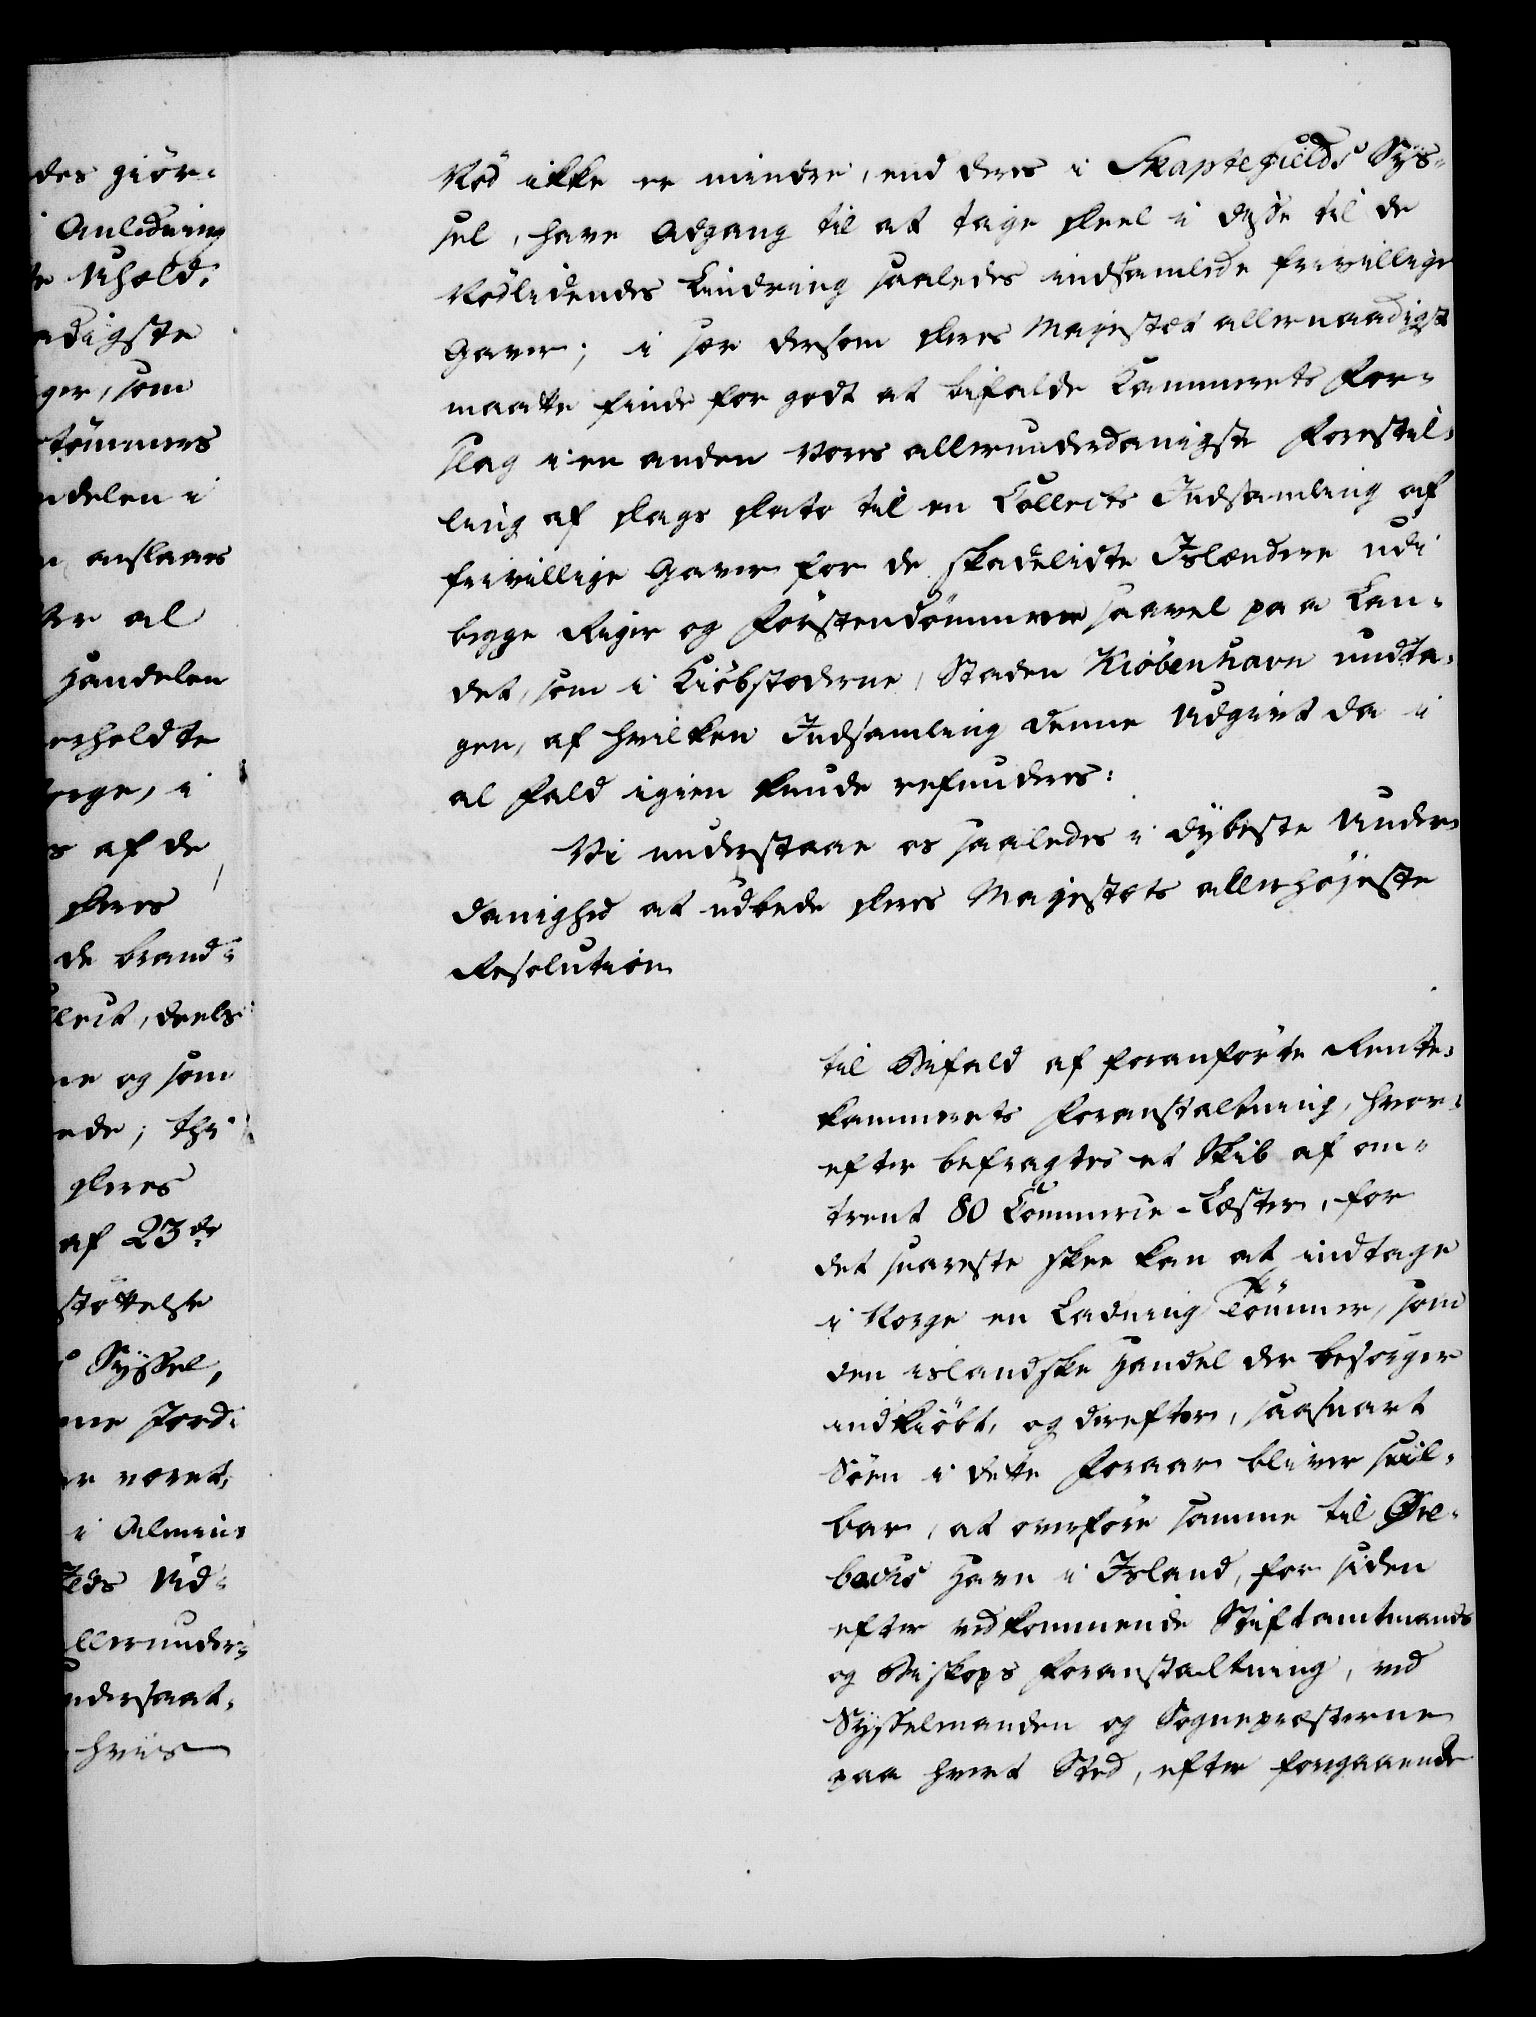 des giör-
Anledning
Uheld.
adigste
ger, som
tömmers
ndelen i
anslaaes
er al
Handelen
erholdte
orge, i
s af de
Deres
de brand-
llect, deels
ne og som
ede; thi
Deres
af 23de
støttelse
Syssel,
ne Jord-
er været,
i Almin-
Ud-
llerunder-
ndersaat-
hvis
Nød ikke er mindre, end deres i Skaptefields Sys-
sel, have Adgang til at tage Deel i disse til de
Nødlidendes Lindring saaledes indsamlede frivillige
Gaver; i sær dersom Deres Majestæt allernaadigst
maatte finde for godt at bifalde Kammerets For-
slag i en anden vores allerunderdanigste Forestil-
ling af Dags Dato til en Collects Indsamling af
frivillige Gaver for de skadelidte Islændere udi
begge Riger og Förstendömmerne saavel paa Lan-
det, som i Kiöbstæderne, Staden Kiöbenhavn undta-
gen, af hvilken Indsamling denne Udgivt da i
al Fald igien kunde refunderes:
Vi understaae os saaledes i dybeste Under-
danighed at udbede Deres Majestæts allerhöjeste
Resolution
til Bifald af foranförte Rente-
kammerets Foranstaltning, hvor-
efter befragtes et Skib af om-
trent 80 Commerce-Læster, for
det snareste skee kan at indtage
i Norge en Ladning Tömmer, som
den islandske Handel der besörger
indkiöbt, og derefter, saasnart
Söen i dette Foraar bliver seil-
bar, at overföre samme til Øre-
bakes Havn i Island, for siden
efter vedkommende Stiftamtmands
og Biskops Foranstaltning, ved
Sysselmanden og Sognepræsterne
paa hvert Sted, efter foregaaende